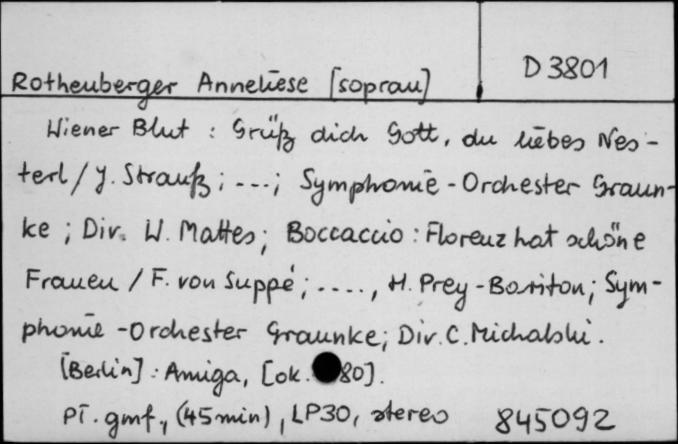 D 3801
Rothenberger Anneliese [sopran]
Wiener Blut : Grüß dich Gott, du liebes Nes-
terl / J. Strauß ; ---; Symphonie - Orchester Graun-
ke ; Div. W. Mattes ; Boccaccio : Florenz hat schöne
Frauen / F. von Suppé ; ...., H. Prey - Bariton ; Sym-
phonie - Orchester Graunke ; Div. C. Michalski.
[Berlin] : Amiga, [ok. 80].
Pł. gmf., (45 min), LP30, stereo 845092